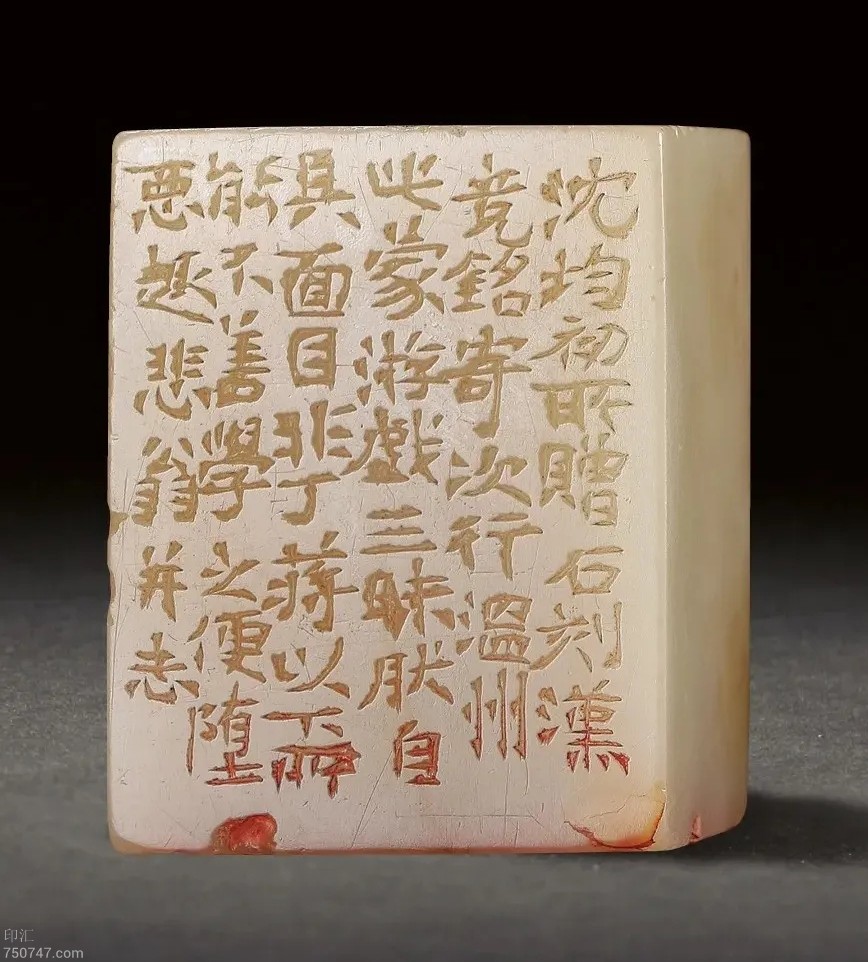 沈均初所贈石刻漢
竟銘寄次行溫州
此蒙游戲三昧肰自
具面目非丁蔣以下所
能不善學之便堕
惡趣悲翁并志
印汇
750747.com